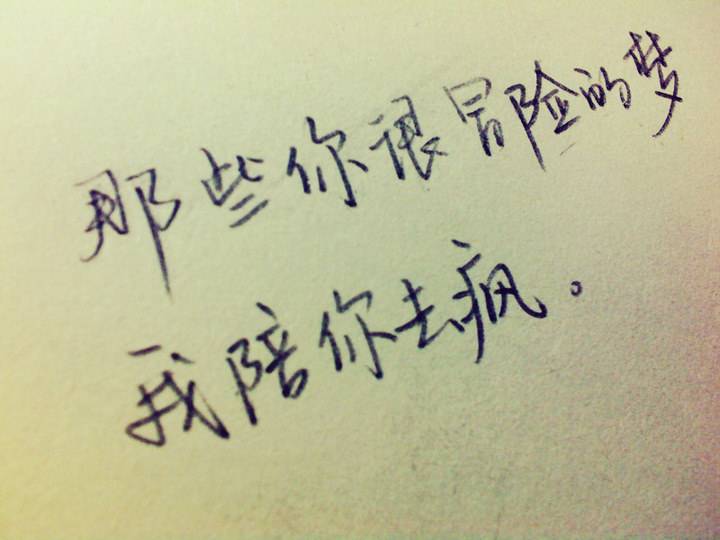 那些你很冒险的梦
我陪你去疯。